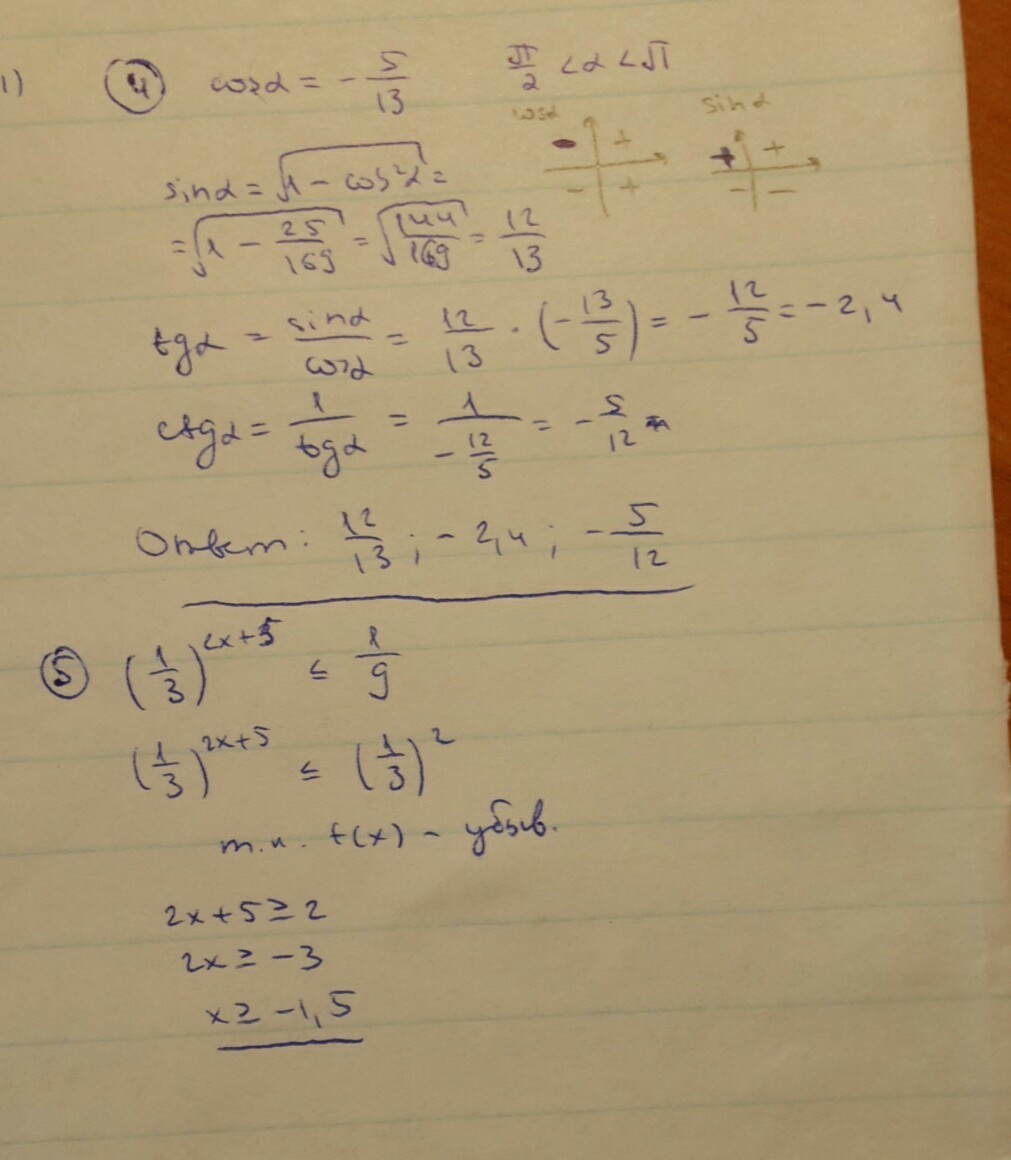 1) ④ cosα = - 5/13    π/2 < α < π
cosα    sinα
- +    + +
- +    - -
sinα = √(1 - cos²α) =
= √(1 - 25/169) = √(144/169) = 12/13
tgα = sinα/cosα = 12/13 · (-13/5) = - 12/5 = - 2,4
ctgα = 1/tgα = 1/(-12/5) = - 5/12
Ответ: 12/13 ; - 2,4 ; - 5/12
⑤ (1/3)^(2x+5) ≤ 1/9
(1/3)^(2x+5) ≤ (1/3)^2
т.к. f(x) - убыв.
2x + 5 ≥ 2
2x ≥ - 3
x ≥ - 1,5